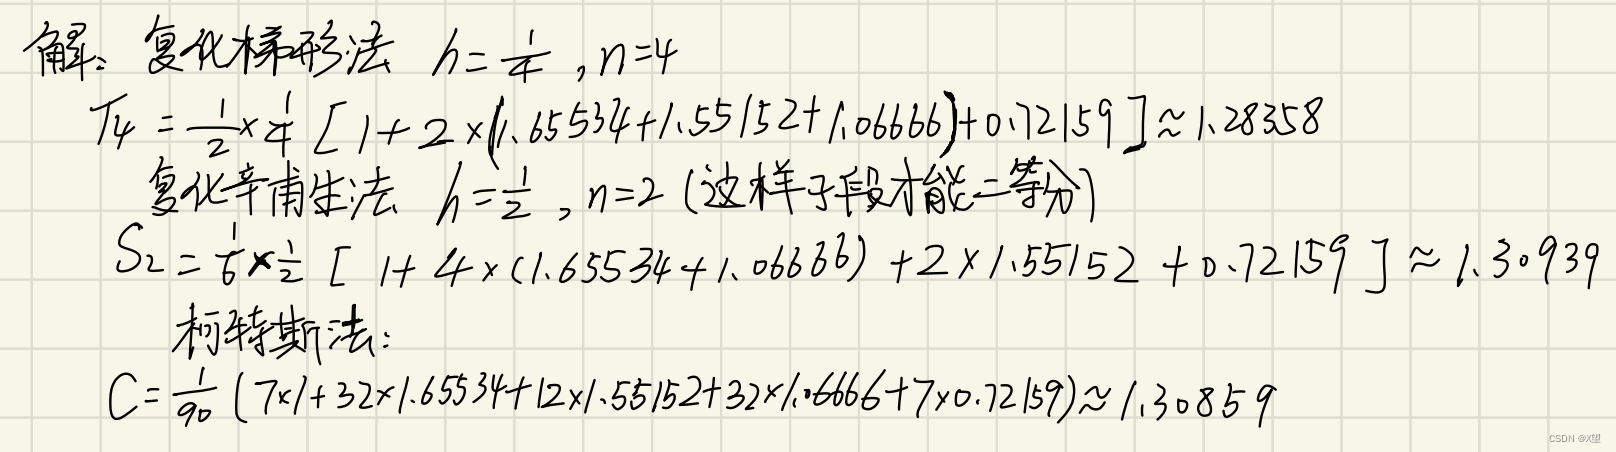 解: 复化梯形法 h=1/4, n=4
T4 = 1/2 × 1/4 [1+2×(1.65534+1.55152+1.06666)+0.72159] ≈ 1.28358
复化辛甫生法 h=1/2, n=2 (这样子段才能二等分)
S2 = 1/6 × 1/2 [1+4×(1.65534+1.06666)+2×1.55152+0.72159] ≈ 1.30939
柯特斯法:
C = 1/90 (7×1+32×1.65534+12×1.55152+32×1.06666+7×0.72159) ≈ 1.30859
CSDN @X望